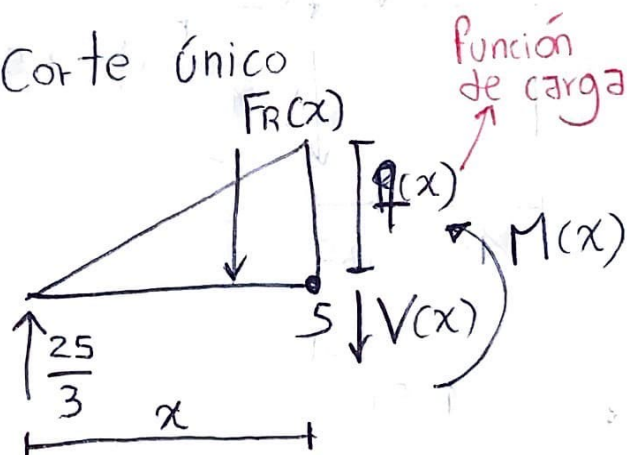 Corte único
función
de carga
FR(x)
q(x)
M(x)
S
V(x)
25
3
x